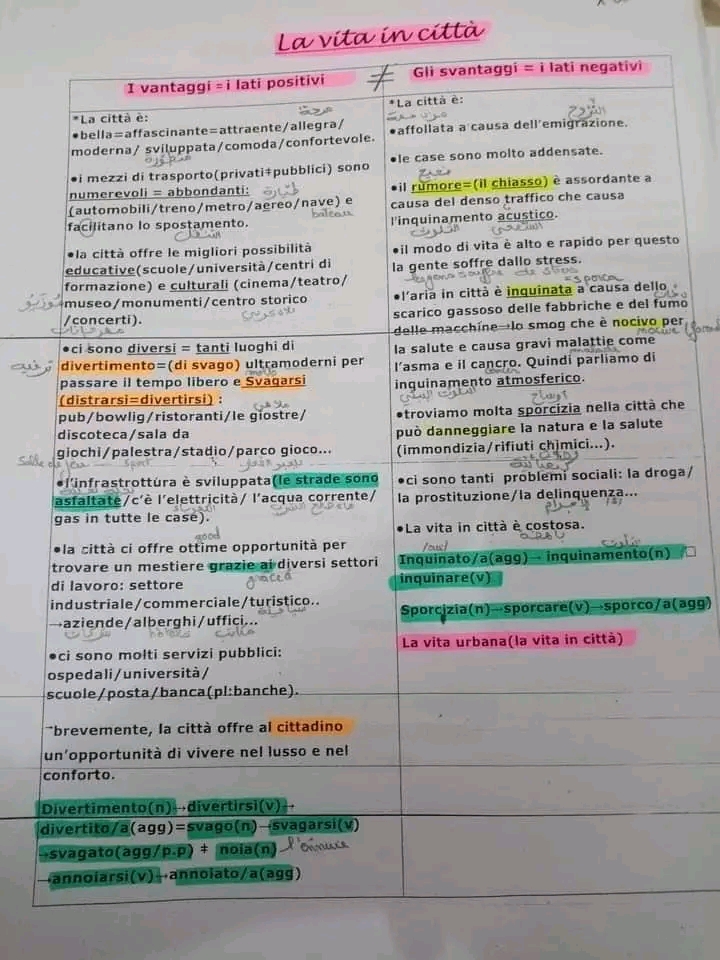 La vita in città
I vantaggi = i lati positivi
*La città è:
•bella=affascinante=attraente/allegra/
moderna/ sviluppata/comoda/confortevole.
•i mezzi di trasporto(privati‡pubblici) sono
numerevoli = abbondanti:
(automobili/treno/metro/aereo/nave) e
facilitano lo spostamento.
bateau
•la città offre le migliori possibilità
educative(scuole/università/centri di
formazione) e culturali (cinema/teatro/
museo/monumenti/centro storico
/concerti).
•ci sono diversi = tanti luoghi di
divertimento=(di svago) ultramoderni per
passare il tempo libero e Svagarsi
(distrarsi=divertirsi) :
pub/bowlig/ristoranti/le giostre/
discoteca/sala da
giochi/palestra/stadio/parco gioco...
Salle de jeu sport
•l'infrastrottura è sviluppata(le strade sono
asfaltate/c'è l'elettricità/ l'acqua corrente/
gas in tutte le case).
good
•la città ci offre ottime opportunità per
trovare un mestiere grazie ai diversi settori
di lavoro: settore
industriale/commerciale/turistico..
→aziende/alberghi/uffici...
•ci sono molti servizi pubblici:
ospedali/università/
scuole/posta/banca(pl:banche).
brevemente, la città offre al cittadino
un'opportunità di vivere nel lusso e nel
conforto.
Divertimento(n)→divertirsi(v)→
divertito/a(agg)=svago(n)→svagarsi(v)
→svagato(agg/p.p) ‡ noia(n)
→annoiarsi(v)→annoiato/a(agg)
≠
Gli svantaggi = i lati negativi
*La città è:
النزوح
•affollata a causa dell'emigrazione.
•le case sono molto addensate.
•il rumore=(il chiasso) è assordante a
causa del denso traffico che causa
l'inquinamento acustico.
التلوث السمعي
•il modo di vita è alto e rapido per questo
la gente soffre dallo stress.
=sporca
•l'aria in città è inquinata a causa dello
scarico gassoso delle fabbriche e del fumo
delle macchine→lo smog che è nocivo per
la salute e causa gravi malattie come
l'asma e il cancro. Quindi parliamo di
inquinamento atmosferico.
•troviamo molta sporcizia nella città che
può danneggiare la natura e la salute
(immondizia/rifiuti chimici...).
•ci sono tanti problemi sociali: la droga/
la prostituzione/la delinquenza...
•La vita in città è costosa.
Inquinato/a(agg)→ inquinamento(n)
inquinare(v)
Sporcizia(n)→sporcare(v)→sporco/a(agg)
La vita urbana(la vita in città)